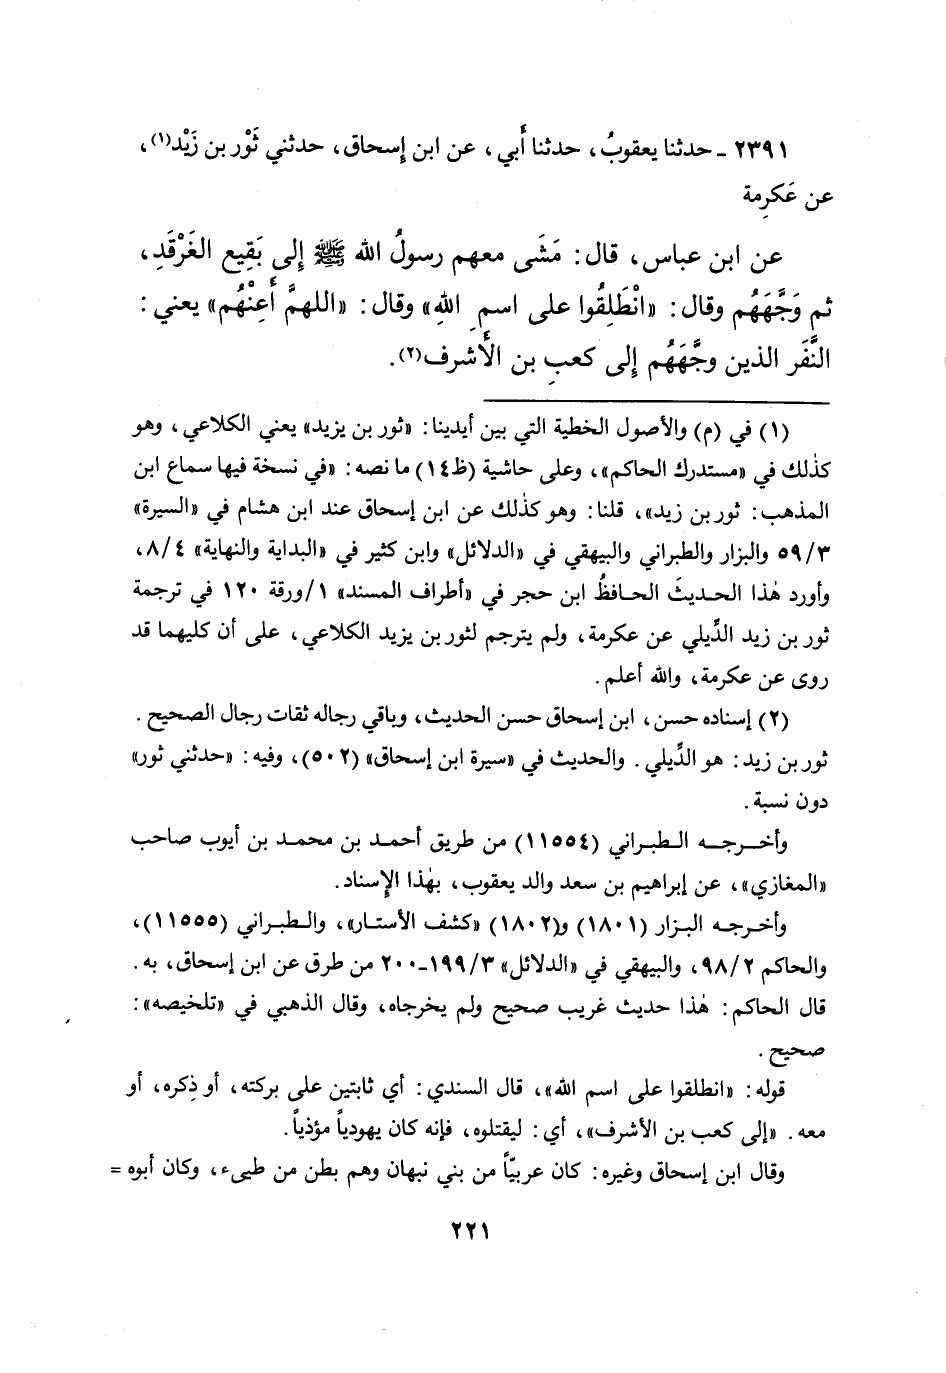 ٢٣٩١ ـ حدثنا يعقوبُ، حدثنا أَبي، عن ابن إسحاق، حدثني ثَوْر بن زَيْد(١)،
عن عَكرِمة
عن ابن عباس، قال: مَشَى معهم رسولُ الله ﷺ إلى بَقِيع الغَرْقَدِ،
ثم وَجَّهَهُم وقال: «انْطَلِقُوا على اسمِ اللهِ» وقال: «اللهمَّ أَعِنْهُم» يعني:
النَّفَر الذين وجَّهَهُم إلى كعبِ بن الأَشرف(٢).
(١) في (م) والأصول الخطية التي بين أيدينا: «ثور بن يزيد» يعني الكلاعي، وهو
كذٰلك في «مستدرك الحاكم»، وعلى حاشية (ظ١٤) ما نصه: «في نسخة فيها سماع ابن
المذهب: ثور بن زيد»، قلنا: وهو كذٰلك عن ابن إسحاق عند ابن هشام في «السيرة»
٥٩/٣ والبزار والطبراني والبيهقي في «الدلائل» وابن كثير في «البداية والنهاية» ٨/٤،
وأورد هٰذا الحديثَ الحافظُ ابن حجر في «أطراف المسند» ١/ورقة ١٢٠ في ترجمة
ثور بن زيد الدِّيلي عن عكرمة، ولم يترجم لثور بن يزيد الكلاعي، على أن كليهما قد
روى عن عكرمة، والله أعلم.
(٢) إسناده حسن، ابن إسحاق حسن الحديث، وباقي رجاله ثقات رجال الصحيح.
ثور بن زيد: هو الدِّيلي. والحديث في «سيرة ابن إسحاق» (٥٠٢)، وفيه: «حدثني ثور»
دون نسبة.
وأخرجه الطبراني (١١٥٥٤) من طريق أحمد بن محمد بن أيوب صاحب
«المغازي»، عن إبراهيم بن سعد والد يعقوب، بهٰذا الإسناد.
وأخرجه البزار (١٨٠١) و(١٨٠٢) «كشف الأستار»، والطبراني (١١٥٥٥)،
والحاكم ٩٨/٢، والبيهقي في «الدلائل» ١٩٩/٣-٢٠٠ من طرق عن ابن إسحاق، به.
قال الحاكم: هٰذا حديث غريب صحيح ولم يخرجاه، وقال الذهبي في «تلخيصه»:
صحيح.
قوله: «انطلقوا على اسم الله»، قال السندي: أي ثابتين على بركته، أو ذِكره، أو
معه. «إلى كعب بن الأشرف»، أي: ليقتلوه، فإنه كان يهودياً مؤذياً.
وقال ابن إسحاق وغيره: كان عربيّاً من بني نبهان وهم بطن من طيىء، وكان أبوه =
٢٢١